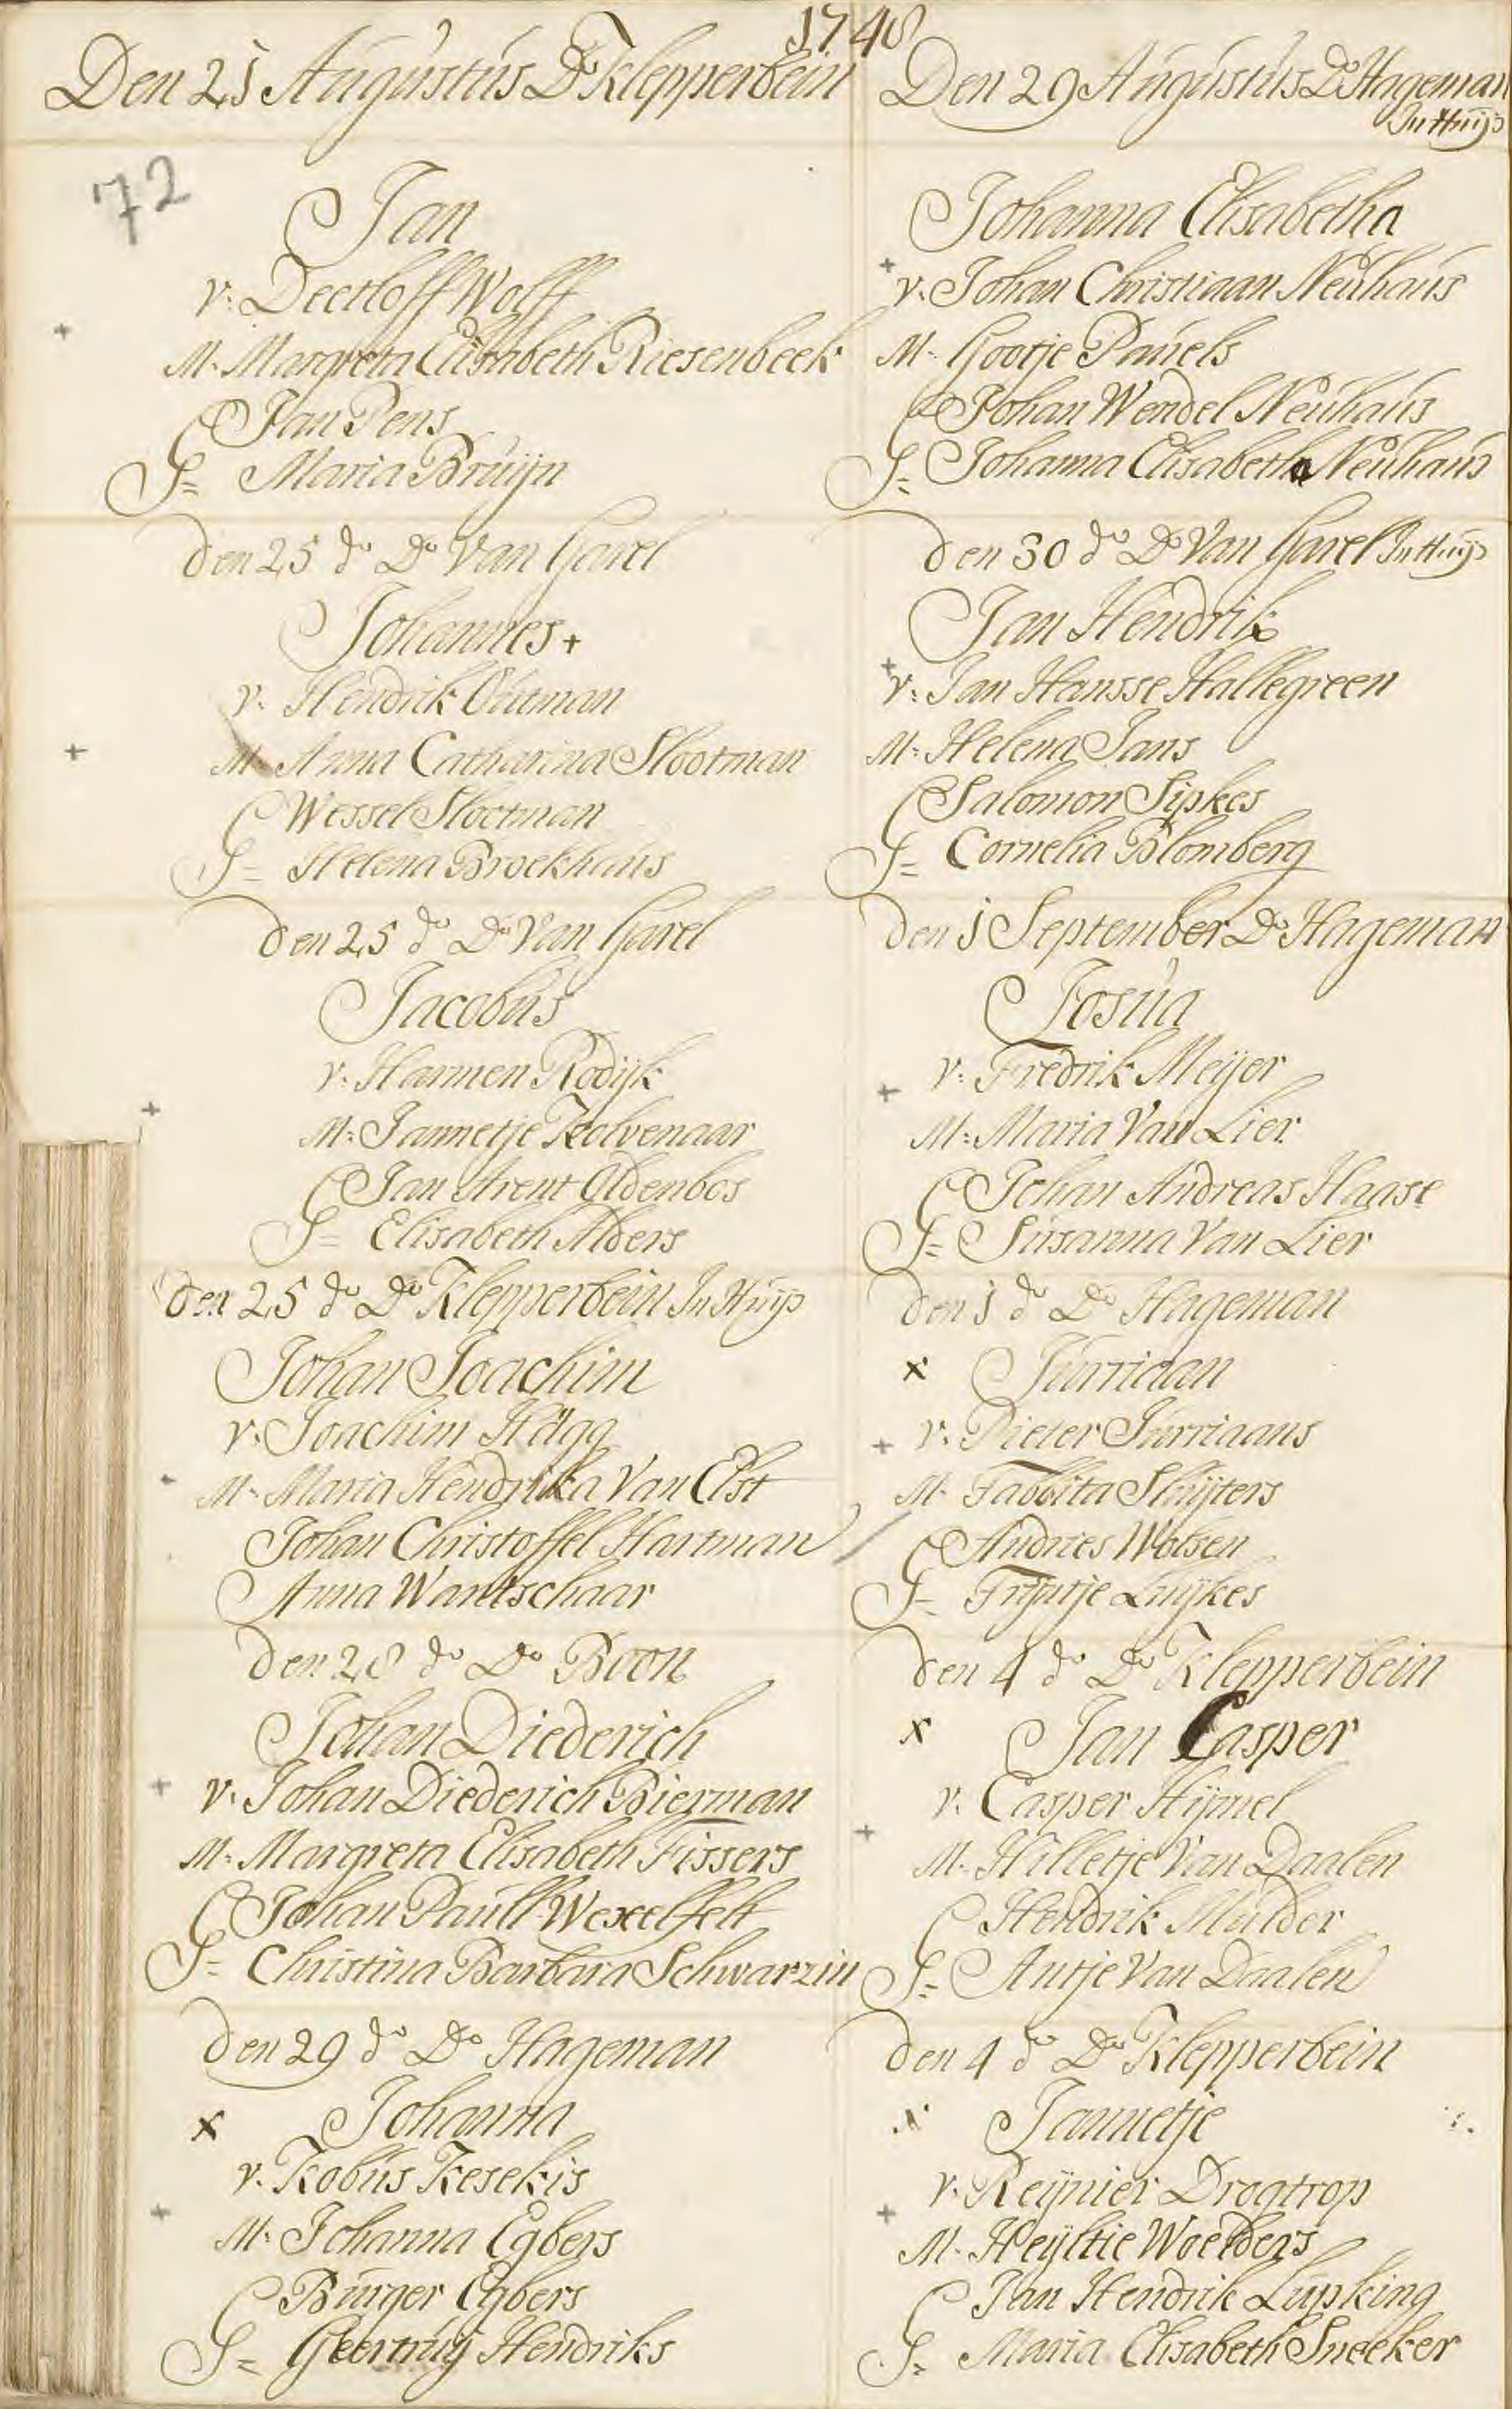 1748
Den 21 Augustus Do Klepperbein
72
Jan
v: Deetloff Wolff
M: Margreta Elisabeth Riesenbeek
Jan Pens
G= Maria Bruijn
den 25 do Do Van Garel
Johannes +
v: Hendrik Outman
M: Anna Catharina Slootman
Wessel Slootman
G= Helena Broekhaus
den 25 do Do Van Garel
Jacobus
v: Harmen Rodijk
M: Jannetje Kolvenaar
Jan Arent Oldenbos
G= Elisabeth Alders
den 25 do Do Klepperbein In Huijs
Johan Joachim
v: Joachim Hägg
M: Maria Hendrika Van Elst
Johan Christoffel Hartman
Anna Wantschaar
den 28 do Do Boon
Johan Diederich
v: Johan Diederich Bierman
M: Margreta Elisabeth Fissers
Johan Paull Wexelfelt
G= Christina Barbara Schwarzin
den 29 do Do Hageman
x Johanna
v: Kobus Kesekis
M: Johanna Egbers
Burger Egbers
G= Geertruij Hendriks
Den 29 Augustus Do Hageman
In Huijs
Johanna Elisabetha
v: Johan Christiaan Neuhaus
M: Gootje Pauels
Johan Wendel Neuhaus
G= Johanna Elisabetha Neuhaus
den 30 do Do Van Garel In Huijs
Jan Hendrik
v: Jan Hansse Hallegreen
M: Helena Jans
Salomon Sipkes
G= Cornelia Blomberg
den 1 September Do Hageman
Josua
v: Fredrik Meijer
M: Maria Van Lier
Johan Andreas Haase
G= Susanna Van Lier
den 1 do Do Hageman
x Jurriaan
v: Pieter Jurriaans
M: Tabbita Sluijters
Andries Wolsen
G= Trijntje Luijkes
den 4 do Do Klepperbein
x Jan Casper
v: Casper Hijmel
M: Hilletje Van Daalen
Hendrik Mulder
G= Antje Van Daalen
den 4 do Do Klepperbein
Jannetje
v: Reijnier Drogtrop
M: Heijltie Woelders
Jan Hendrik Lupking
G= Maria Elisabeth Sneeker